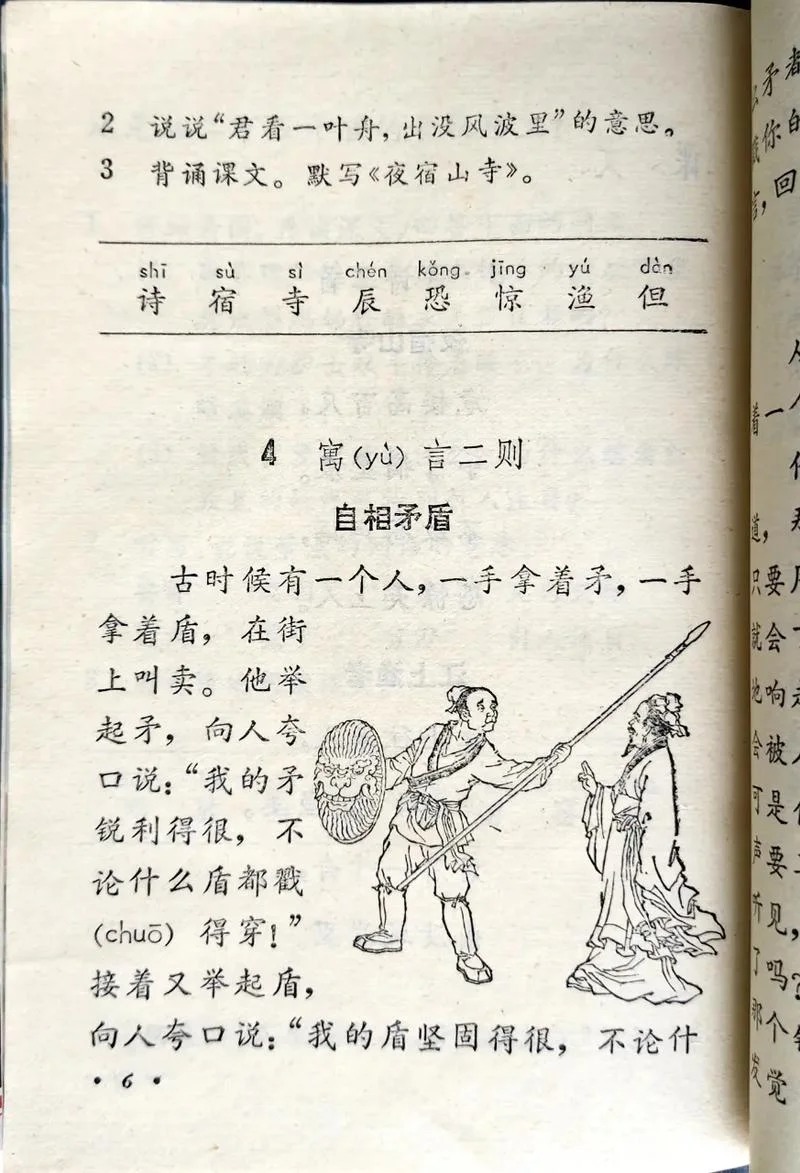 2 说说“君看一叶舟，出没风波里”的意思。
3 背诵课文。默写《夜宿山寺》。
shī sù sì chén kǒng jīng yú dàn
诗 宿 寺 辰 恐 惊 渔 但
4 寓(yù)言二则
自相矛盾
古时候有一个人，一手拿着矛，一手
拿着盾，在街
上叫卖。他举
起矛，向人夸
口说：“我的矛
锐利得很，不
论什么盾都戳
(chuō)得穿！”
接着又举起盾，
向人夸口说：“我的盾坚固得很，不论什
·6·